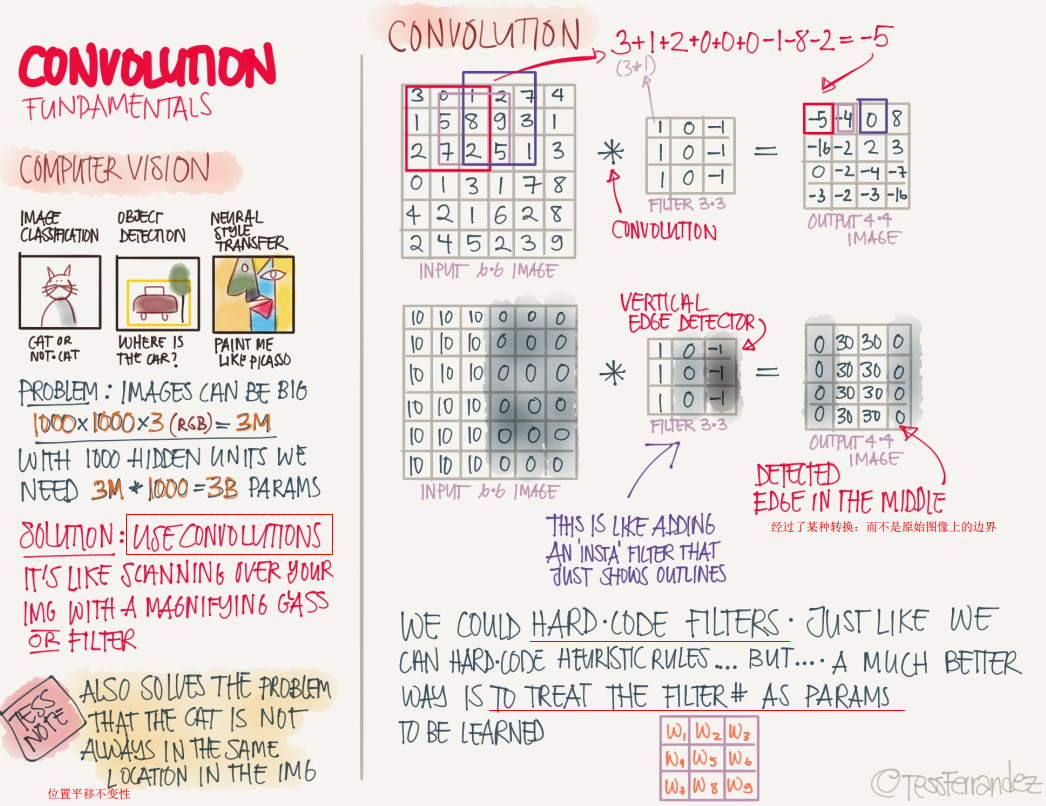 CONVOLUTION
FUNDAMENTALS
COMPUTER VISION
IMAGE
CLASSIFICATION
CAT OR
NOT-CAT
OBJECT
DETECTION
WHERE IS
THE CAR?
NEURAL
STYLE
TRANSFER
PAINT ME
LIKE PICASSO
PROBLEM: IMAGES CAN BE BIG
1000×1000×3 (RGB) = 3M
WITH 1000 HIDDEN UNITS WE
NEED 3M * 1000 = 3B PARAMS
SOLUTION: USE CONVOLUTIONS
IT'S LIKE SCANNING OVER YOUR
IMG WITH A MAGNIFYING GASS
OR FILTER
TESS
NOTE
ALSO SOLVES THE PROBLEM
THAT THE CAT IS NOT
ALWAYS IN THE SAME
LOCATION IN THE IMG
位置平移不变性
CONVOLUTION
3+1+2+0+0+0-1-8-2=-5
(3*1)
3 0 1 2 7 4
1 5 8 9 3 1
2 7 2 5 1 3
0 1 3 1 7 8
4 2 1 6 2 8
2 4 5 2 3 9
INPUT 6·6 IMAGE
*
CONVOLUTION
1 0 -1
1 0 -1
1 0 -1
FILTER 3·3
=
-5 -4 0 8
-16 -2 2 3
0 -2 -4 -7
-3 -2 -3 -16
OUTPUT 4·4
IMAGE
10 10 10 0 0 0
10 10 10 0 0 0
10 10 10 0 0 0
10 10 10 0 0 0
10 10 10 0 0 0
10 10 10 0 0 0
INPUT 6·6 IMAGE
*
VERTICAL
EDGE DETECTOR
1 0 -1
1 0 -1
1 0 -1
FILTER 3·3
=
0 30 30 0
0 30 30 0
0 30 30 0
0 30 30 0
OUTPUT 4·4
IMAGE
DETECTED
EDGE IN THE MIDDLE
经过了某种转换；而不是原始图像上的边界
THIS IS LIKE ADDING
AN 'INSTA' FILTER THAT
JUST SHOWS OUTLINES
WE COULD HARD·CODE FILTERS · JUST LIKE WE
CAN HARD·CODE HEURISTIC RULES.... BUT.... A MUCH BETTER
WAY IS TO TREAT THE FILTER # AS PARAMS
TO BE LEARNED
W1 W2 W3
W4 W5 W6
W7 W8 W9
©TessFerrandez